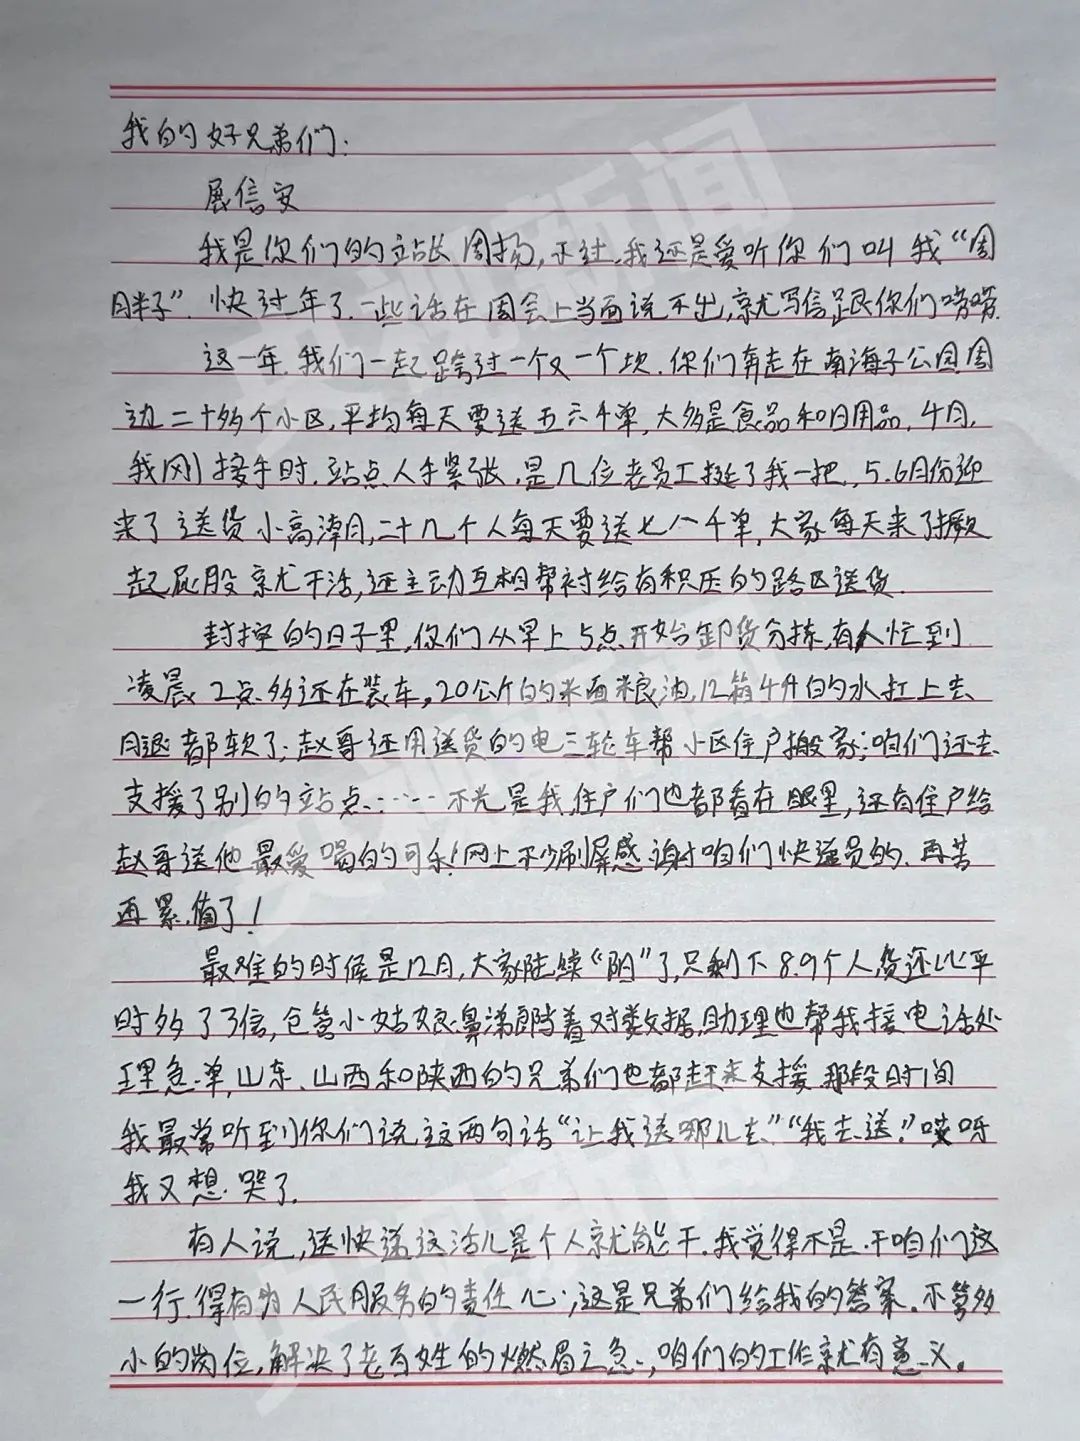 我的好兄弟们：
展信安
我是你们的站长周扬，不过，我还是爱听你们叫我“周
胖子”．快过年了．一些话在周会上当面说不出，就写信跟你们唠唠．
这一年．我们一起跨过一个又一个坎．你们奔走在南海子公园周
边二十多个小区，平均每天要送五六千单，大多是食品和日用品，4月，
我刚接手时．站点人手紧张，是几位老员工挺了我一把，5.6月份迎
来了送货小高潮，二十几个人每天要送七八千单，大家每天来了撅
起屁股就干活，还主动互相帮衬给有积压的路区送货．
封控的日子里，你们从早上5点开始卸货分拣，有人忙到
凌晨2点多还在装车，20公斤的米面粮油，12箱4升的水扛上去
腿都软了；赵哥还用送货的电三轮车帮小区住户搬家；咱们还去
支援了别的站点……不光是我，住户们也都看在眼里，还有住户给
赵哥送他最爱喝的可乐！网上不少刷屏感谢咱们快递员的．再苦
再累．值了！
最难的时候是12月，大家陆续“阳”了，只剩下8.9个人，货还比平
时多了3倍，仓管小姑娘鼻涕郎当着对数据，助理也帮我接电话处
理急单，山东、山西和陕西的兄弟们也都赶来支援．那段时间
我最常听到你们说这两句话“让我送哪儿去”“我去送．”哎呀
我又想哭了．
有人说，送快递这活儿是个人就能干．我觉得不是．干咱们这
一行．得有为人民服务的责任心，这是兄弟们给我的答案．不管多
小的岗位，解决了老百姓的燃眉之急，咱们的工作就有意义。
央视新闻
央视新闻
央视新闻